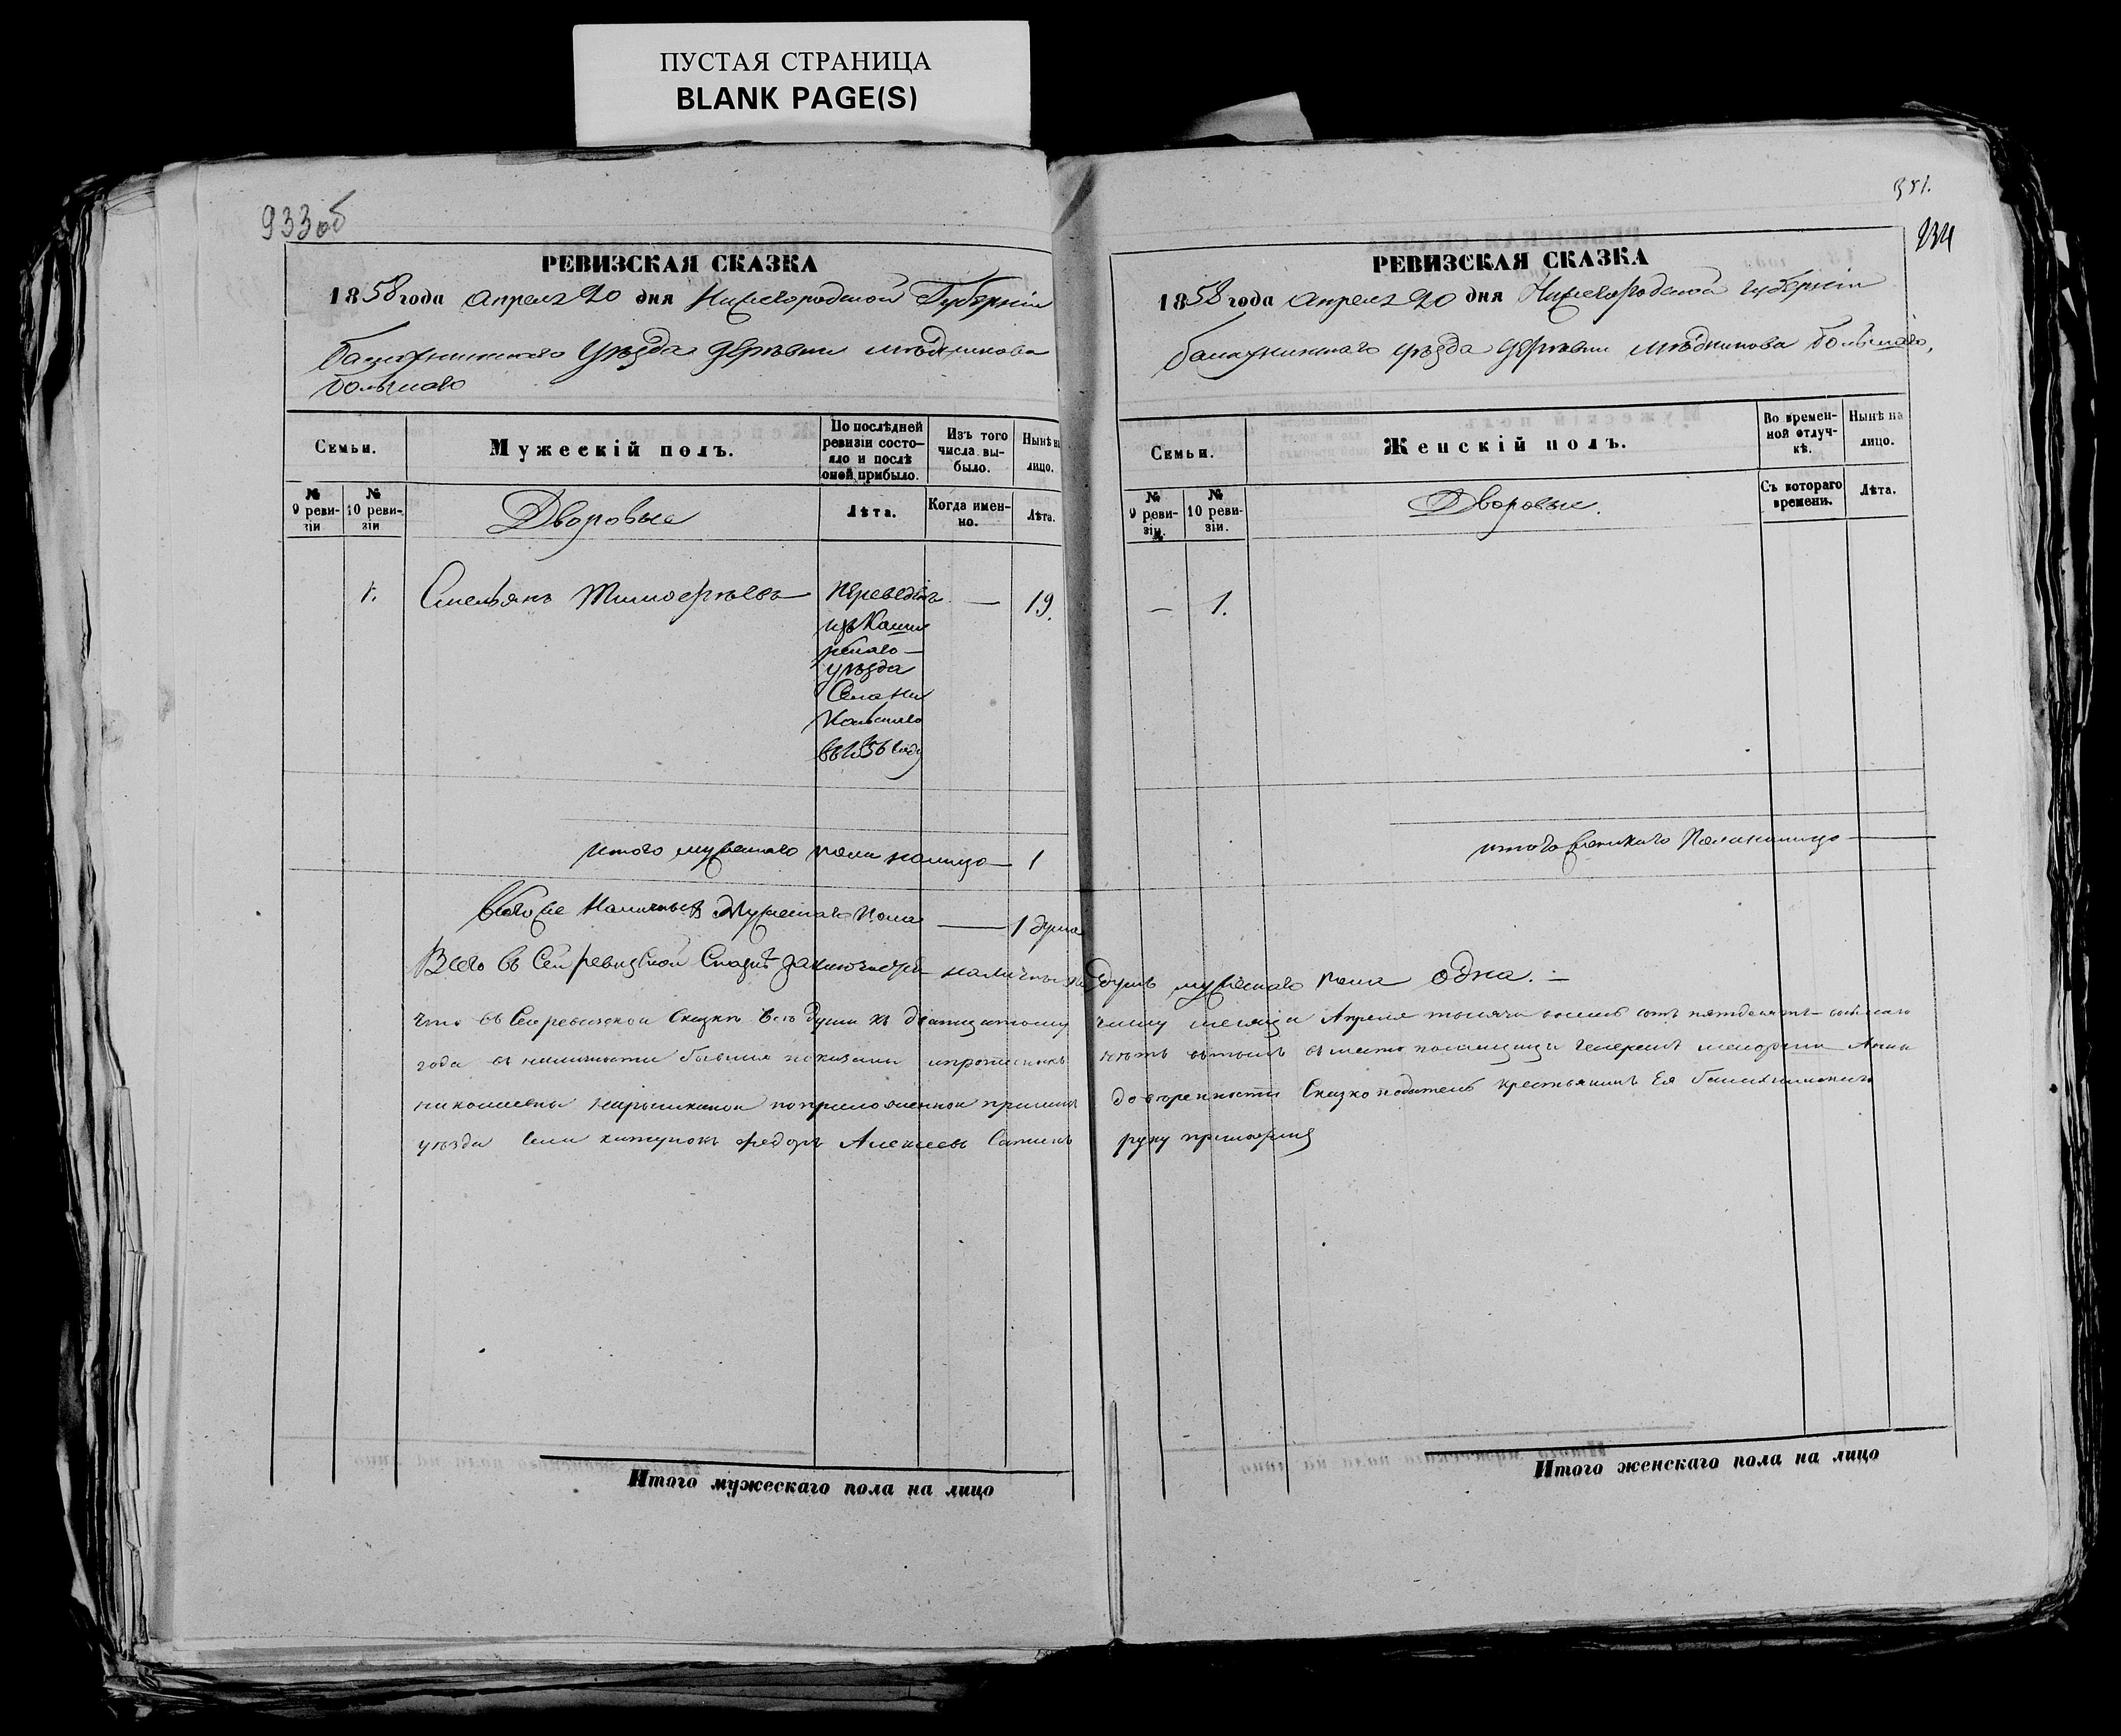 ПУСТАЯ СТРАНИЦА
BLANK PAGE(S)
933об
РЕВИЗСКАЯ СКАЗКА
1858 года Апреля 20 дня Нижегородской Губерніи
балахнинскаго Уѣзда деревни мѣдникова
большаго
Семьи.
Мужескій полъ.
По послѣдней ревизіи состояло и послѣ оной прибыло.
Изъ того числа выбыло.
Нынѣ на лицо.
№ 9 ревизіи
№ 10 ревизіи
Дворовые
Лѣта.
Когда именно.
Лѣта.
1.
Емельянъ Тимофѣевъ
переведенъ
изъ
уѣзда
Села Ни
кольскаго
въ 1856 году
—
19.
итого мужескаго пола налицо — 1
Мужескаго пола — 1 душа
Всего въ сей ревизской Сказкѣ заключается наличныхъ душъ мужескаго пола одна. —
что въ Сей ревизской Сказкѣ всѣ души къ двадцатому числу месяца Апреля тысяча восемь сотъ пятдесятъ
года въ наличности бывшия показаны и прописныхъ нѣтъ въ томъ въ место помещицы генералъ маіорши Анны
николаевны по приложенной при доверенности Сказко податель крестьянинъ Ея балахнинскаго
уѣзда села катунокъ федоръ Алексеевъ руку приложилъ
Итого мужескаго пола на лицо
351.
934
РЕВИЗСКАЯ СКАЗКА
1858 года Апреля 20 дня Нижегородской губерніи
балахнинскаго уѣзда деревни мѣдникова большаго,
Семьи.
Женскій полъ.
Во временной отлучкѣ.
Нынѣ на лицо.
№ 9 ревизіи.
№ 10 ревизіи.
Дворовые.
Съ котораго времени.
Лѣта.
— 1.
итого женскаго пола налицо —
Итого женскаго пола на лицо